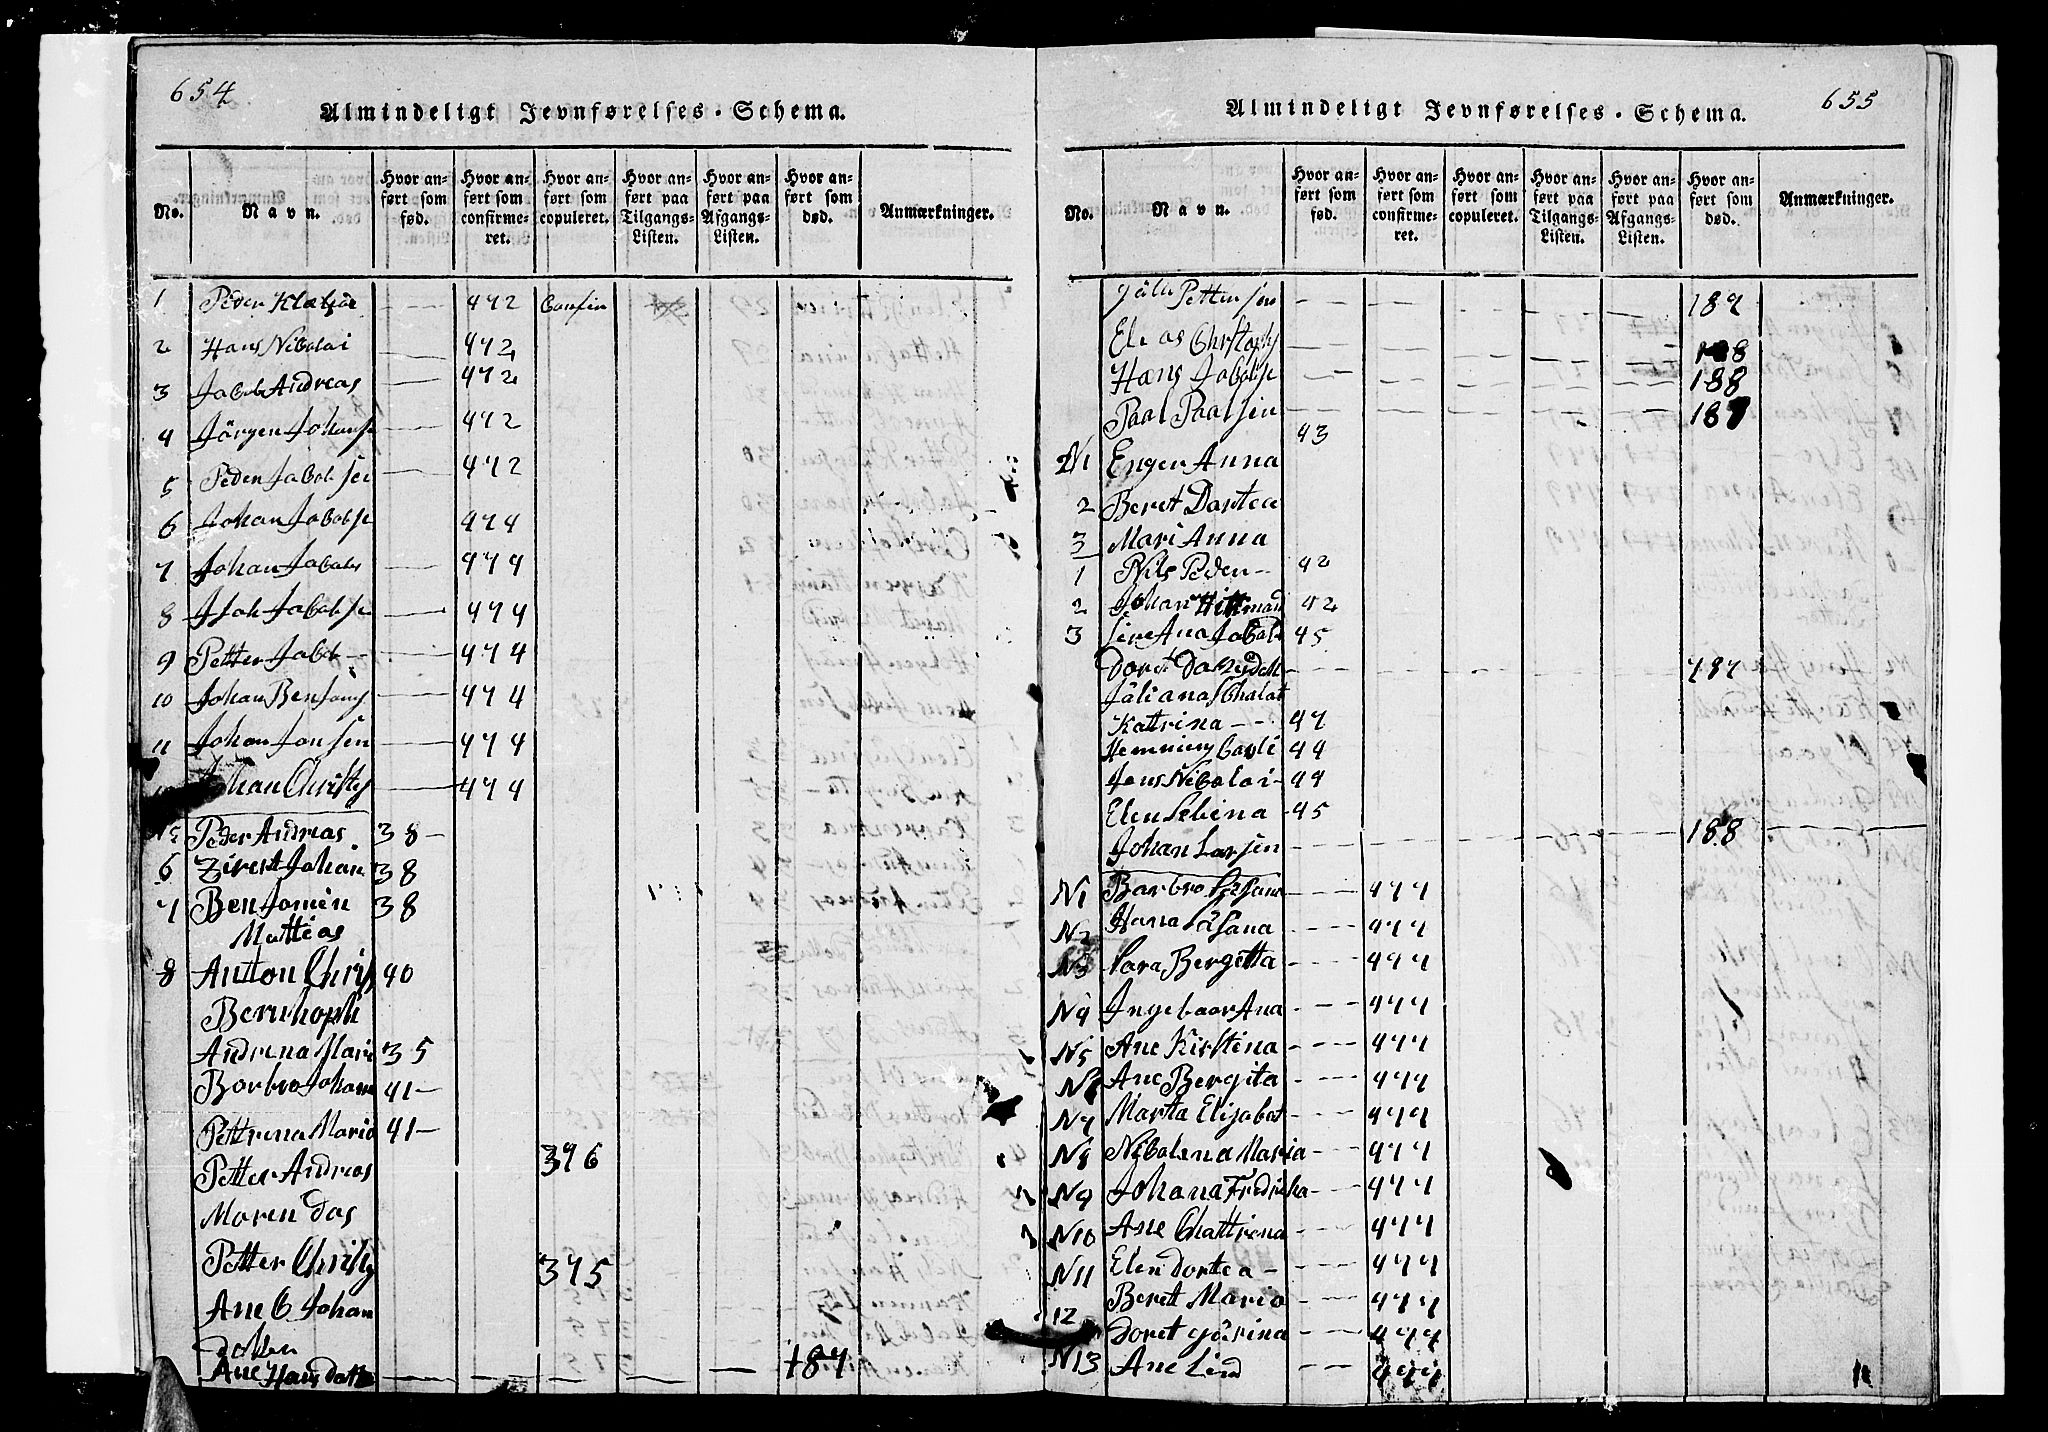 654
Almindeligt Jevnførelses-Schema.
No.
Navn.
Hvor an-
ført som
fød.
Hvor an-
ført som
confirme-
ret.
Hvor an-
ført som
copuleret.
Hvor an-
ført paa
Tilgangs-
Listen.
Hvor an-
ført paa
Afgangs-
Listen.
Hvor an-
ført som
død.
Anmærkninger.
1 Peder 472
2 Hans Nicolai 472
3 Jacob Andreas 472
4 Jörgen Johans 472
5 Peder Jacobsen 472
6 Johan Jacobse 474
7 Johan Jacobs 474
8 Jacobse 474
9 Petter Jacob 474
10 Johan Benjam 474
11 Johan Jonsen 474
Johan Christ 474
N5 Peder Andreas 38
6 Zirest Johan 38
7 Benjamin 38
Mattias
8 Anton Chris 40
Bernhoph
Andrina Mari 35
Barbro Johana 41
Pettrina Maria 41
Petter Andreas 376
Maren Das
Petter Christ 375
Ane C Johan
datter
Ane Hans datte 187
655
Almindeligt Jevnførelses-Schema.
No.
Navn.
Hvor an-
ført som
fød.
Hvor an-
ført som
confirme-
ret.
Hvor an-
ført som
copuleret.
Hvor an-
ført paa
Tilgangs-
Listen.
Hvor an-
ført paa
Afgangs-
Listen.
Hvor an-
ført som
død.
Anmærkninger.
Pettersen 187
Elias Christoph 188
Hans Jacobse 188
Paal Paalsen 187
43
N1 Enger Anna
2 Beret Dortea
3 Mari Anna
1 Nils Peder 42
2 Johan Hitmand 42
3 Ana Jacob 45
Doret 187
Juliana
Kattrina 47
Hemming 44
Jens Nicolai 44
Elen Sebina 45
Johan Larsen 188
N1 Barbro Susana 477
N2 Hana Susana 477
N3 Sara Bergitta 477
N4 Ingebaar Ana 477
N5 Ane Kirstina 477
N6 Ane Bergita 477
N7 Marta Elisabet 477
N8 Nicolina Maria 477
N9 Johana Fredrika 477
N10 Ane Chattrina 477
N11 Elen Dortea 477
12 Berett Maria 477
Doret Görina 477
N13 Ane Lind 477